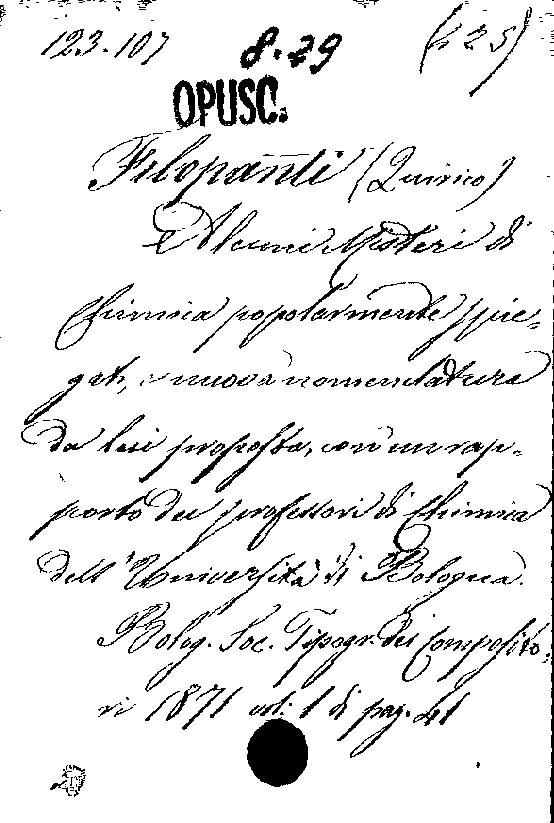 123.107 8.29 (425)
OPUSC.
Filopanti (Quirico)
Alcuni Misteri di
Chimica popolarmente spie-
gati, e nuova nomenclatura
da lui proposta, con un rap-
porto dei professori di Chimica
dell'Università di Bologna.
Bolog. Soc. Tipogr. dei Composito-
ri 1871 vol. 1 di pag. 41